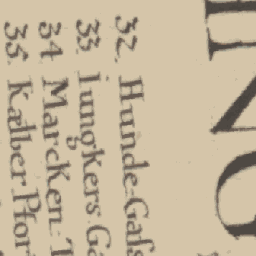 32. Hunde=Gass
33 Iungkers Ga
34 Marcken=T
35. Kælber Pfor
ING